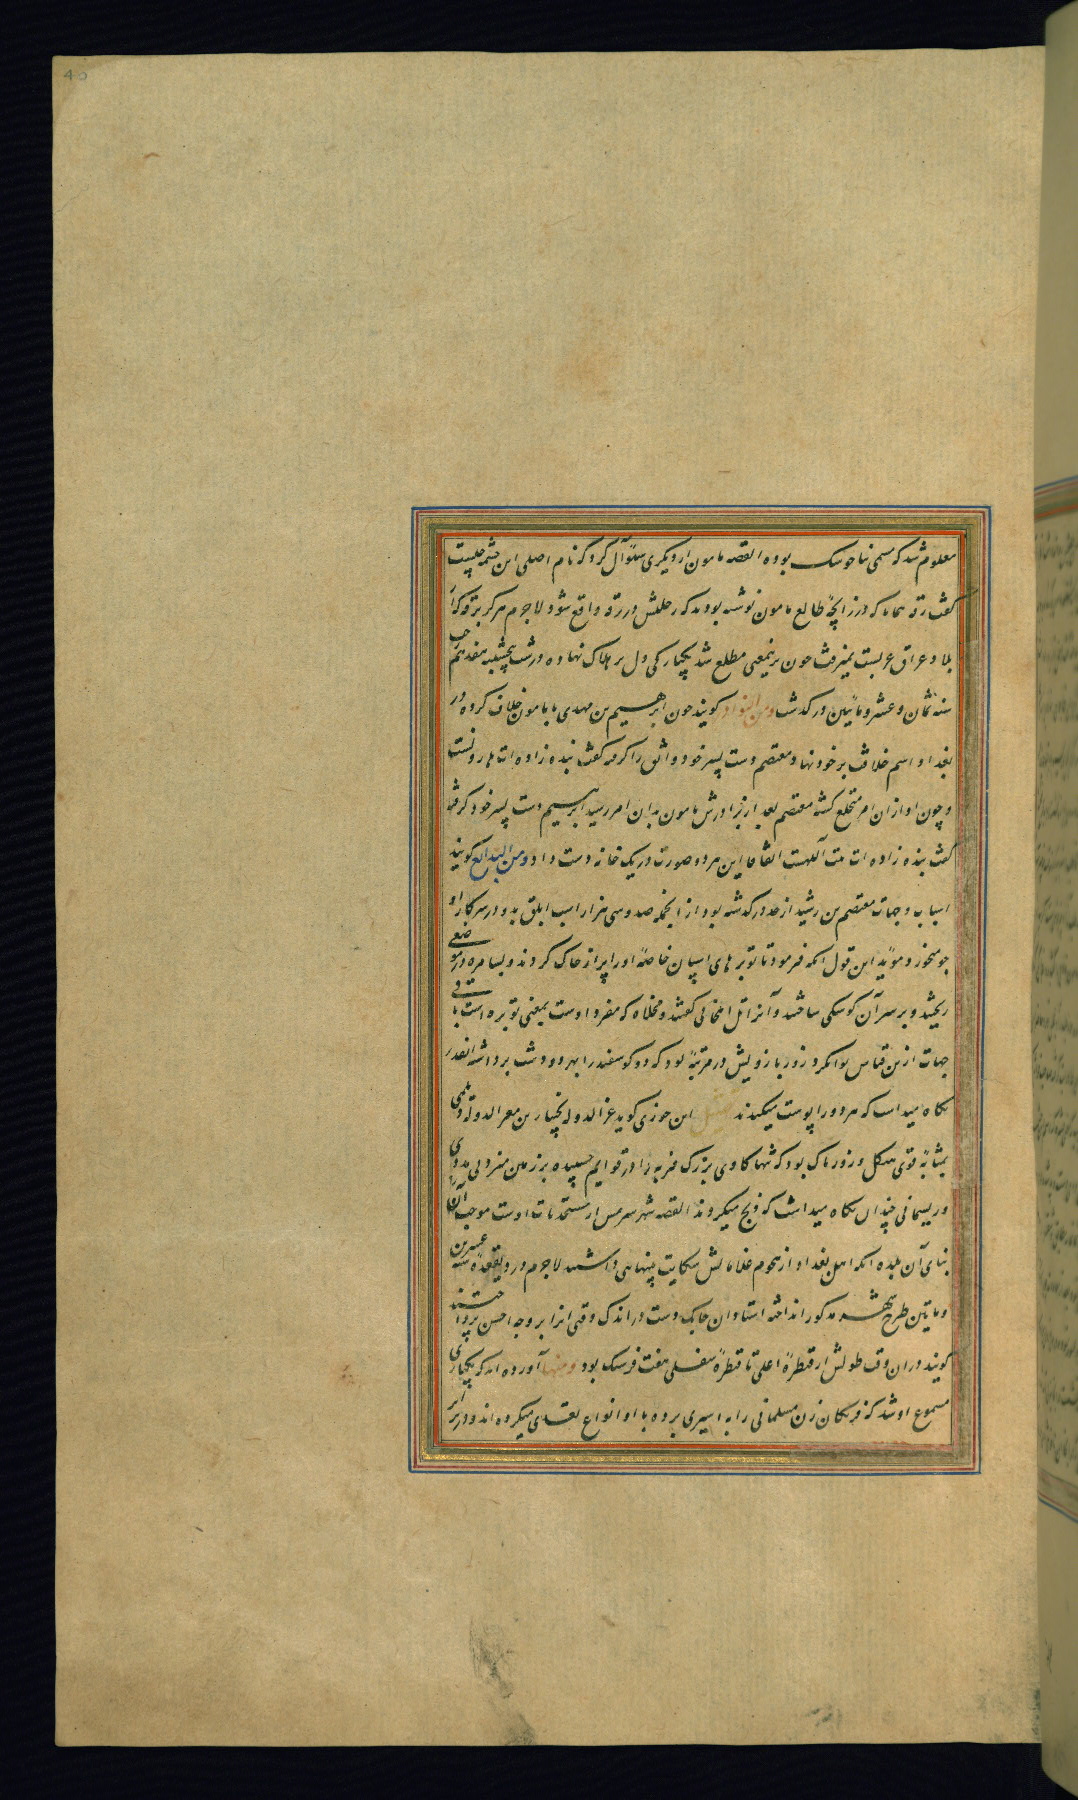 معلوم شد که مسمی بناخوشک بوده القصه مامون از دیگری سئوال کرد که نام اصلی این چشمه چیست
گفت رقه همانا که در زایچهٔ طالع مامون نوشته بودند که رحلتش در رقه واقع شود لاجرم هرگز برقه که از
بلاد عراق عربست نمیرفت چون برینمعنی مطلع شد یکبارگی دل بر هلاک نهاده در شب پنجشنبه هفدهم رجب
سنه ثمان و عشر و مأتین درگذشت ومن النوادر گویند چون ابراهیم بن مهدی با مامون خلاف کرده در
بغداد اسم خلافت بر خود نهاد معتصم دست پسر خود واثق را گرفته گفت بنده زاده ات هارونست
و چون او از ان امر منخلع گشته معتصم بعد از برادرش مامون بدان امر رسید ابراهیم دست پسر خود گرفته
گفت بنده زاده ات هبت اللهست اتفاقا این هر دو صورت در یک خانه دست داد ومن البدایع گویند
اسباب و جهات معتصم بن رشید از حد درگذشته بود از انجمله صد و سی هزار اسب ابلق بدو در سرکار او
جو میخورد و مؤید این قول انکه فرمود تا توبرهای اسپان خاصهٔ او را پر از خاک کردند و بسامره در موضعی
ریختند و بر سر آن کوشکی ساختند و آنرا تل المخالی گفتند و مخلاه که مفرد اوست بمعنی توبره است باقی
جهات ازین قیاس توانکرد و زور بازویش در مرتبهٔ بود که دو گوسفند را بهر دو دست برداشته انقدر
نگاه میداست که هر دو را پوست میکندند ابن جوزی گوید عز الدوله بختیار بن معز الدوله دیلمی
بمثابهٔ قوی هیکل و زورناک بود که تنها گاوی بزرگ فربه را در قوایم چسپیده بر زمین میزد بی مددی
و ریسمانی چندان نگاه میداشت که ذبح میکردند القصه شهر سرمن را از مستحدثات اوست موجب آن
بنای آن بلده انکه اهل بغداد از هجوم غلامانش شکایت پنهانی داشتند لاجرم در ذیقعدهٔ سنه عشرین
و مأتین طرح شهر مذکور انداخته استادان چابک دست در اندک وقتی انرا بر وجه احسن پرداختند
گویند دران وقت طولش از قنطرهٔ اعلی تا قنطرهٔ سفلی هفت فرسنگ بود ومنها آورده اند که یکباری
مسموع او شد که فرنگان زن مسلمانی را به اسیری برده با او انواع تعدی میکرده اند و در برابر